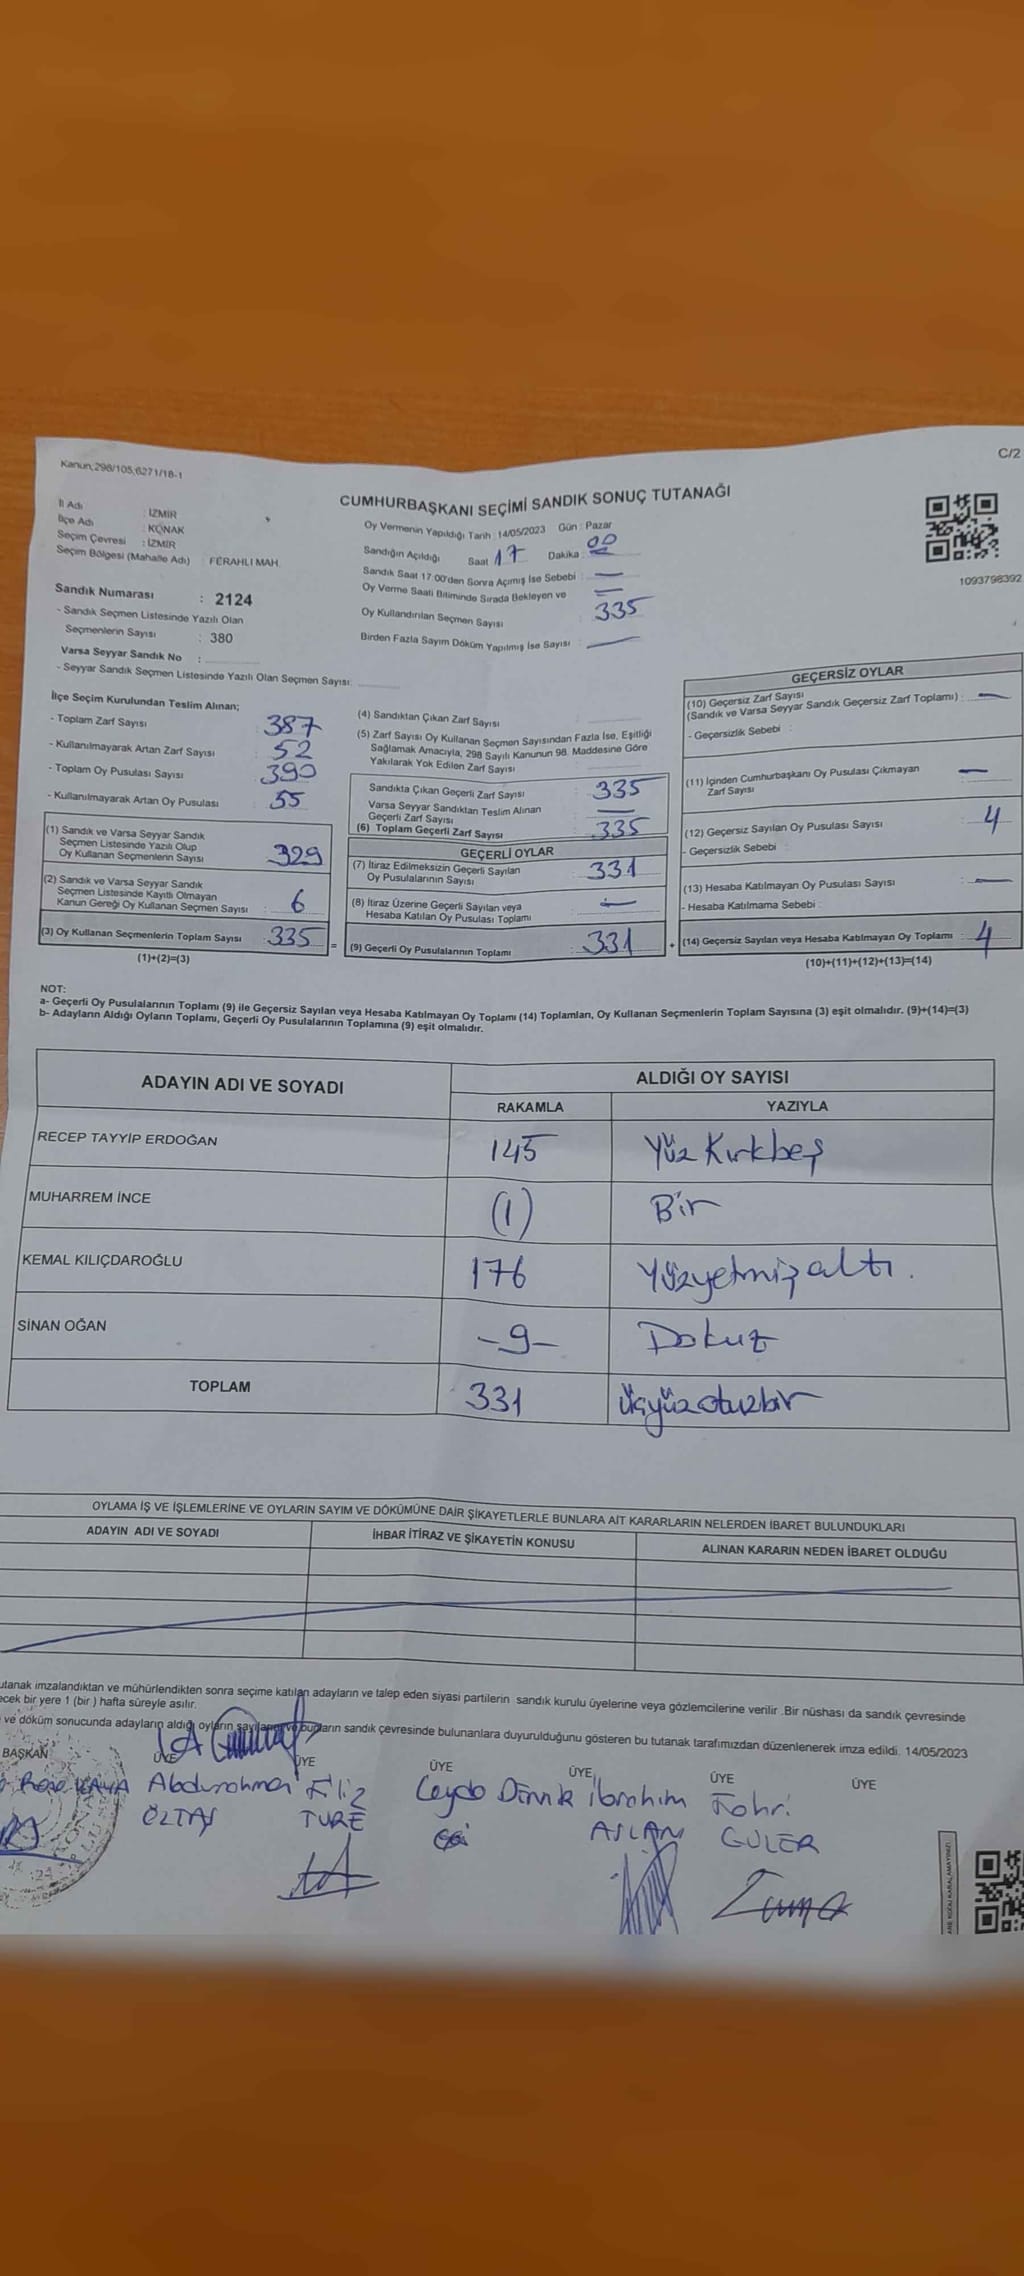 Kanun;298/105,6271/18-1
C/2
CUMHURBAŞKANI SEÇİMİ SANDIK SONUÇ TUTANAĞI
İl Adı : İZMİR
İlçe Adı : KONAK
Seçim Çevresi : İZMİR
Seçim Bölgesi (Mahalle Adı) : FERAHLI MAH.
Sandık Numarası : 2124
- Sandık Seçmen Listesinde Yazılı Olan
Seçmenlerin Sayısı : 380
Varsa Seyyar Sandık No :
- Seyyar Sandık Seçmen Listesinde Yazılı Olan Seçmen Sayısı:
Oy Vermenin Yapıldığı Tarih : 14/05/2023 Gün : Pazar
Sandığın Açıldığı Saat 17 Dakika : 00
Sandık Saat 17:00'den Sonra Açımış İse Sebebi : —
Oy Verme Saati Bitiminde Sırada Bekleyen ve —
Oy Kullandırılan Seçmen Sayısı : 335
Birden Fazla Sayım Döküm Yapılmış İse Sayısı : —
1093798392
İlçe Seçim Kurulundan Teslim Alınan;
- Toplam Zarf Sayısı 387
- Kullanılmayarak Artan Zarf Sayısı 52
- Toplam Oy Pusulası Sayısı 390
- Kullanılmayarak Artan Oy Pusulası 55
(1) Sandık ve Varsa Seyyar Sandık
Seçmen Listesinde Yazılı Olup
Oy Kullanan Seçmenlerin Sayısı 329
(2) Sandık ve Varsa Seyyar Sandık
Seçmen Listesinde Kayıtlı Olmayan
Kanun Gereği Oy Kullanan Seçmen Sayısı 6
(3) Oy Kullanan Seçmenlerin Toplam Sayısı : 335 =
(1)+(2)=(3)
(4) Sandıktan Çıkan Zarf Sayısı
(5) Zarf Sayısı Oy Kullanan Seçmen Sayısından Fazla İse, Eşitliği
Sağlamak Amacıyla, 298 Sayılı Kanunun 98. Maddesine Göre
Yakılarak Yok Edilen Zarf Sayısı
Sandıkta Çıkan Geçerli Zarf Sayısı : 335
Varsa Seyyar Sandıktan Teslim Alınan
Geçerli Zarf Sayısı : —
(6) Toplam Geçerli Zarf Sayısı : 335
GEÇERLİ OYLAR
(7) İtiraz Edilmeksizin Geçerli Sayılan
Oy Pusulalarının Sayısı : 331
(8) İtiraz Üzerine Geçerli Sayılan veya
Hesaba Katılan Oy Pusulası Toplamı : —
(9) Geçerli Oy Pusulalarının Toplamı : 331 +
GEÇERSİZ OYLAR
(10) Geçersiz Zarf Sayısı
(Sandık ve Varsa Seyyar Sandık Geçersiz Zarf Toplamı) : —
- Geçersizlik Sebebi :
(11) İçinden Cumhurbaşkanı Oy Pusulası Çıkmayan
Zarf Sayısı —
(12) Geçersiz Sayılan Oy Pusulası Sayısı : 4
- Geçersizlik Sebebi :
(13) Hesaba Katılmayan Oy Pusulası Sayısı : —
- Hesaba Katılmama Sebebi :
(14) Geçersiz Sayılan veya Hesaba Katılmayan Oy Toplamı : 4
(10)+(11)+(12)+(13)=(14)
NOT:
a- Geçerli Oy Pusulalarının Toplamı (9) ile Geçersiz Sayılan veya Hesaba Katılmayan Oy Toplamı (14) Toplamları, Oy Kullanan Seçmenlerin Toplam Sayısına (3) eşit olmalıdır. (9)+(14)=(3)
b- Adayların Aldığı Oyların Toplamı, Geçerli Oy Pusulalarının Toplamına (9) eşit olmalıdır.
ADAYIN ADI VE SOYADI
ALDIĞI OY SAYISI
RAKAMLA YAZIYLA
RECEP TAYYİP ERDOĞAN 145 Yüz Kırkbeş
MUHARREM İNCE (1) Bir
KEMAL KILIÇDAROĞLU 176 Yüzyetmişaltı.
SİNAN OĞAN -9- Dokuz
TOPLAM 331 üçyüzotuzbir
OYLAMA İŞ VE İŞLEMLERİNE VE OYLARIN SAYIM VE DÖKÜMÜNE DAİR ŞİKAYETLERLE BUNLARA AİT KARARLARIN NELERDEN İBARET BULUNDUKLARI
ADAYIN ADI VE SOYADI İHBAR İTİRAZ VE ŞİKAYETİN KONUSU ALINAN KARARIN NEDEN İBARET OLDUĞU
utanak imzalandıktan ve mühürlendikten sonra seçime katılan adayların ve talep eden siyasi partilerin sandık kurulu üyelerine veya gözlemcilerine verilir .Bir nüshası da sandık çevresinde
ecek bir yere 1 (bir ) hafta süreyle asılır.
ve döküm sonucunda adayların aldığı oyların ve bunların sandık çevresinde bulunanlara duyurulduğunu gösteren bu tutanak tarafımızdan düzenlenerek imza edildi. 14/05/2023
BAŞKAN ÜYE ÜYE ÜYE ÜYE ÜYE ÜYE
KAYA Abdurrahman Filiz Ceyda İbrahim Fahri
ÖLTAŞ TURE ASLAN GÜLER